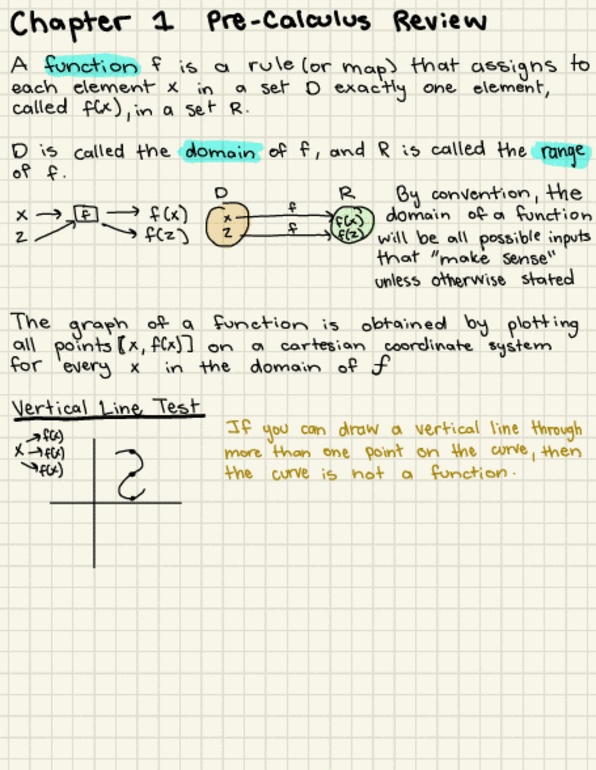 Chapter 1 Pre-Calculus Review
A function f is a rule (or map) that assigns to
each element x in a set D exactly one element,
called f(x), in a set R.
D is called the domain of f, and R is called the range
of f.
x → f → f(x)
z f(z)
D R
x f f(x)
z f f(z)
By convention, the
domain of a function
will be all possible inputs
that "make sense"
unless otherwise stated
The graph of a function is obtained by plotting
all points [x, f(x)] on a cartesian coordinate system
for every x in the domain of f
Vertical Line Test
→ f(x)
x → f(x)
→ f(x)
If you can draw a vertical line through
more than one point on the curve, then
the curve is not a function.